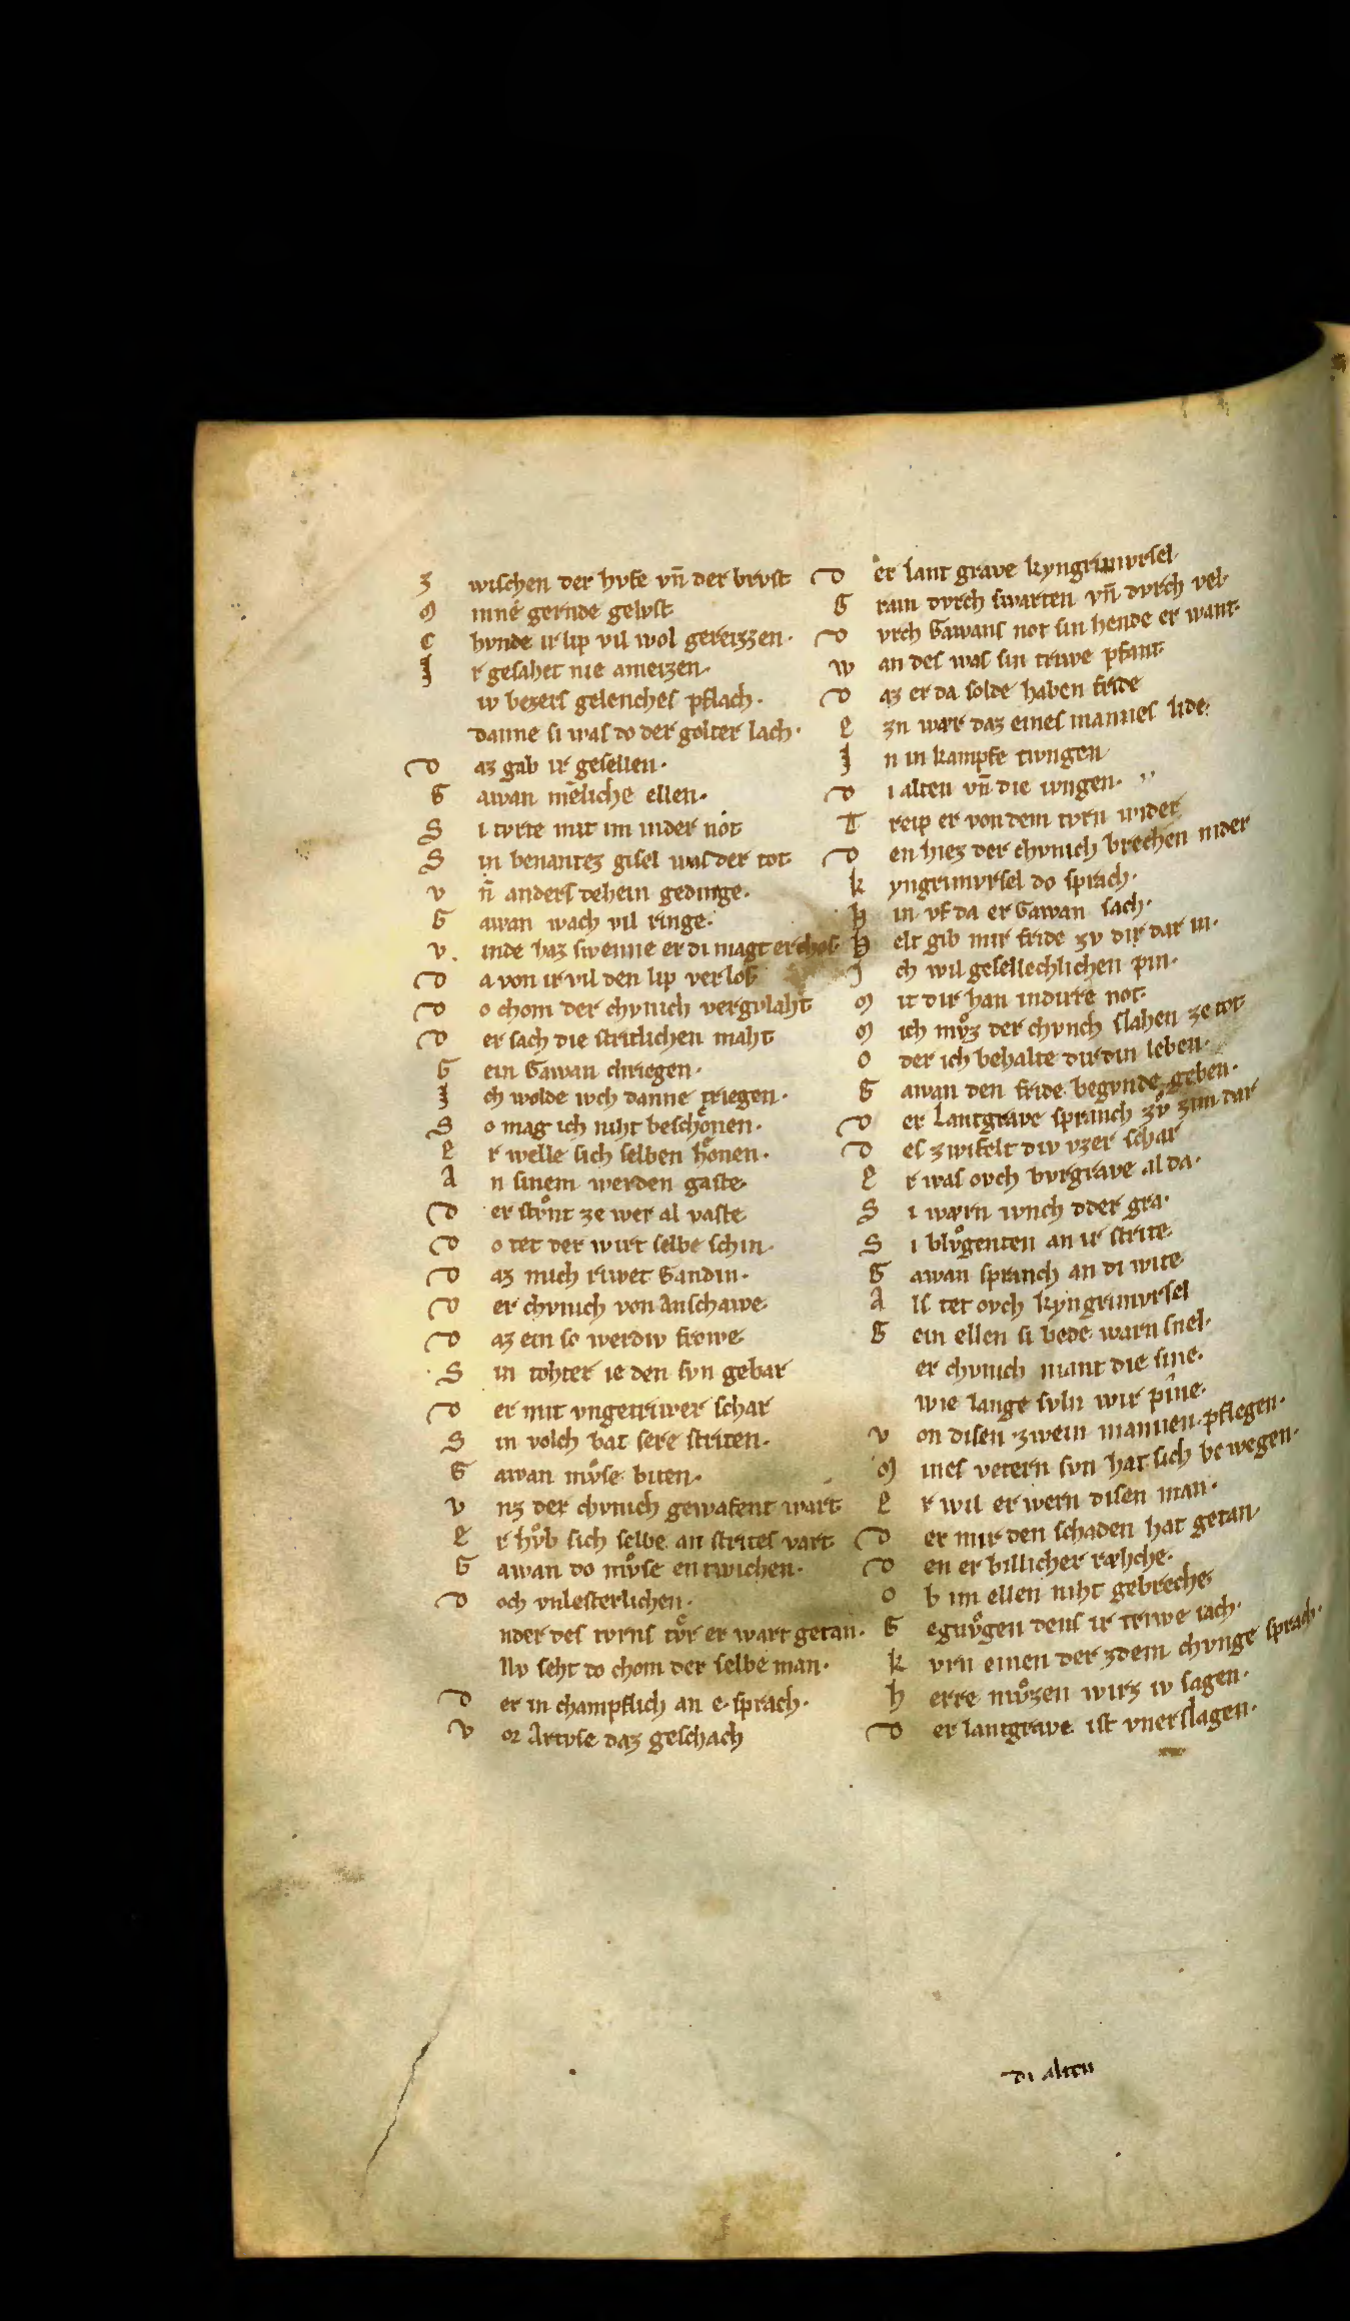 Z wischen der hvfe vn̄ der brvst
M inne gernde gelvst
C hvnde ir lip vil wol gereizzen·
I r gesahet nie ameizen·
iv bezers gelenches pflach·
danne si was do der golter lach·
D az gab ir gesellen·
G awan mēliche ellen·
S i tvrte mit im inder not
S in benantez gisel was der tot
V n̄ anders dehein gedinge·
G awan wach vil ringe·
V inde haz swenne er di magt erchos·
D a von ir vil den lip verlos
D o chom der chvnich vergvlaht
D er sach die stritlichen maht
G ein Gawan chriegen·
I ch wolde ivch danne triegen·
S o mag ich niht beschoͤnen·
E r welle sich selben hoͤnen·
A n sinem werden gaste
D er stvͦnt ze wer al vaste
D o tet der wirt selbe schin·
D az mich riwet Gandin·
D er chvnich von Anschawe
D az ein so werdiv frowe
S in tohter ie den svn gebar
D er mit vngetriwer schar
S in volch bat sere striten·
G awan mvͦse biten·
V nz der chvnich gewafent wart
E r hvͦb sich selbe an strites vart
G awan do mvͦse entwichen·
D och vnlesterlichen·
nder des tvrns tvͤr er wart getan·
Nv seht do chom der selbe man·
D er in champflich an e sprach·
V or Artvse daz geschach
D er lant grave kyngrimvrsel·
G ram dvrch swarten vn̄ dvrch vel·
D vrch Gawans not sin hende er want·
W an des was sin triwe pfant
D az er da solde haben fride
E zn wær daz eines mannes lide·
I n in kampfe twngen
D i alten vn̄ die ivngen·
T reip er von dem tvrn wider
D en hiez der chvnich brechen nider
K yngrimvrsel do sprach·
H in vf da er Gawan sach·
H elt gib mir fride zv dir dar in·
I ch wil gesellechlichen pin·
M it dir han indirre not·
M ich mvͦz der chvnch slahen ze tot
O der ich behalte dir din leben·
G awan den fride begvnde geben·
D er Lantgrave spranch zvͦ zim dar
D es zwifelt div vzer schar
E r was ovch bvrgrave al da·
S i wærn ivnch oder gra·
S i blvͦgenten an ir strite
G awan spranch an di wite
A ls tet ovch kyngrimvrsel
G ein ellen si bede warn snel·
er chvnich mant die sine·
wie lange svln wir pine·
V on disen zwein mannen pflegen·
M ines vetern svn hat sich bewegen·
E r wil erwern disen man·
D er mir den schaden hat getan
D en er billicher ræhche·
O b im ellen niht gebreche
G egnvͦgen dens ir triwe iach·
K vrn einen der zdem chvnge sprach·
H erre mvͦzen wirz iv sagen·
D er lantgrave ist vnerslagen·